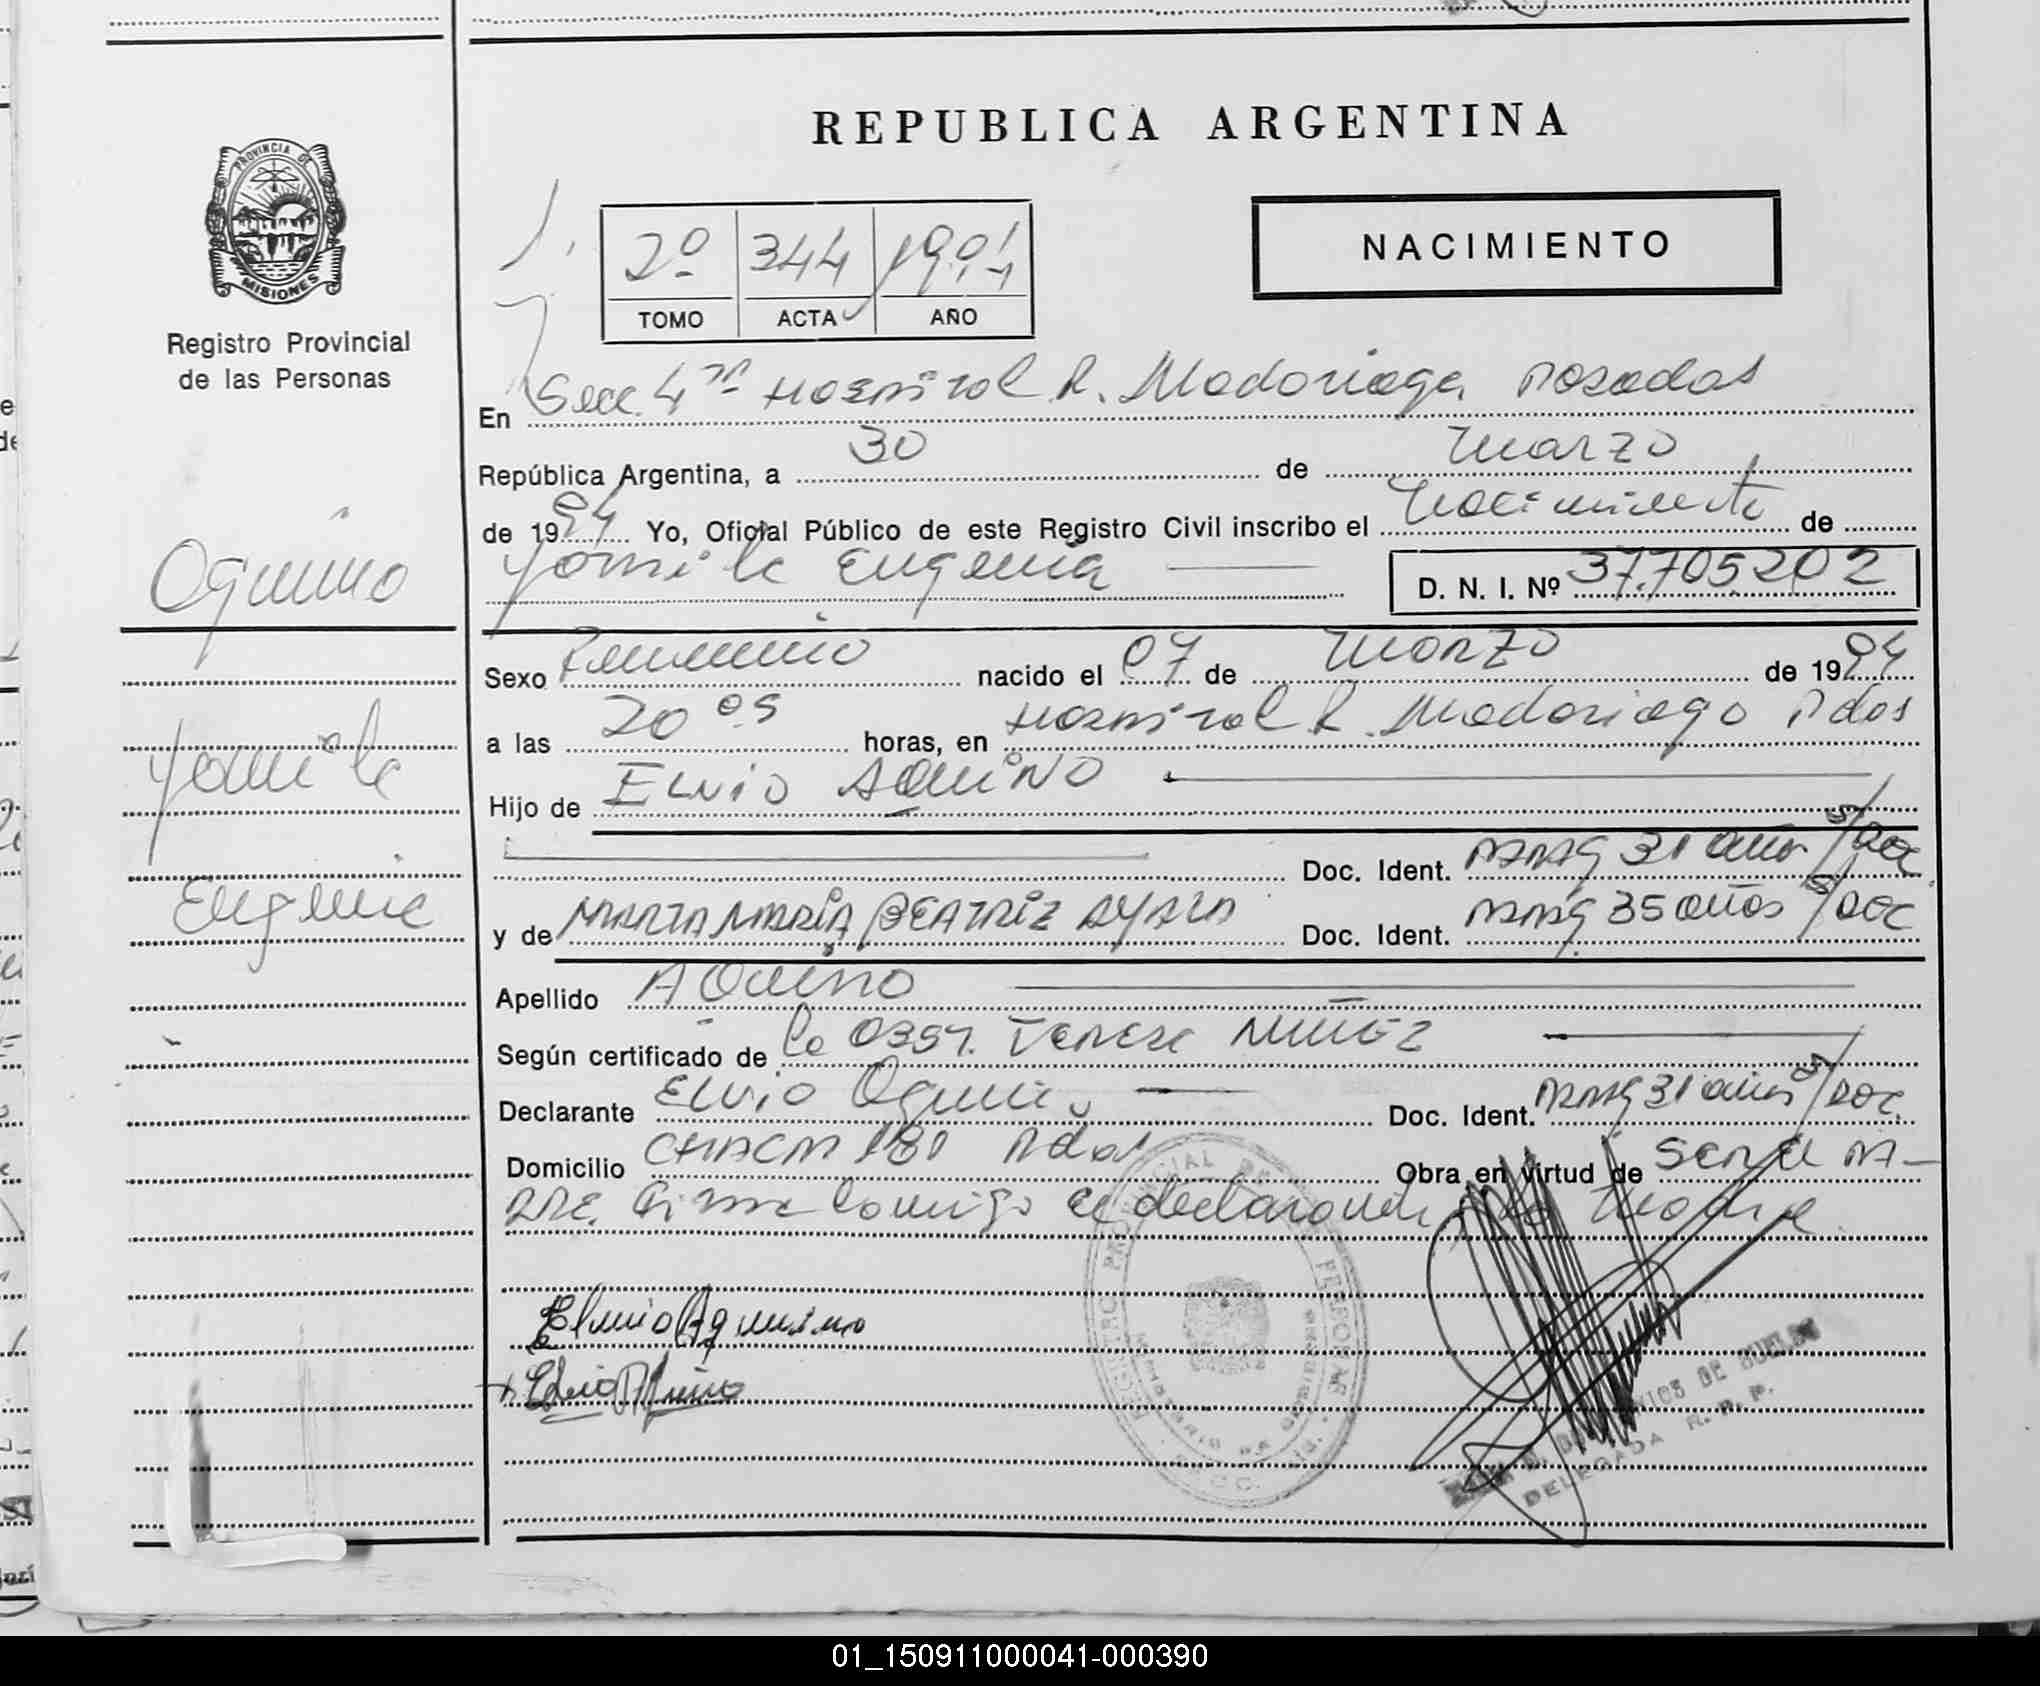 REPUBLICA ARGENTINA
PROVINCIA DE
MISIONES
Registro Provincial
de las Personas
2º 344 1994
TOMO ACTA AÑO
NACIMIENTO
En Secc. 4ta Hospital R. Madariaga Posadas
República Argentina, a 30 de Marzo
de 1994 Yo, Oficial Público de este Registro Civil inscribo el Nacimiento de
Yamila Eugenia D. N. I. Nº 37.705.202
Aquino
Yamila
Eugenia
Sexo Femenino nacido el 07 de Marzo de 1994
a las 20 05 horas, en Hospital R. Madariaga Pdas
Hijo de ELVIO AQUINO
Doc. Ident. 31 años s/DOC
y de MARTA MARÍA BEATRIZ AYALA Doc. Ident. 35 años s/DOC
Apellido AQUINO
Según certificado de la Obst. Teresa NUÑEZ
Declarante Elvio Aquino Doc. Ident. 31 años s/DOC.
Domicilio CHACRA 181 Pdas Obra en virtud de Ser el PA-
DRE. Firma Conmigo el declarante y la Madre.
Elvio Aquino
REGISTRO PROVINCIAL DE PERSONAS
MINISTERIO DE GOBIERNO
DELEGADA R. P. P.
01_150911000041-000390